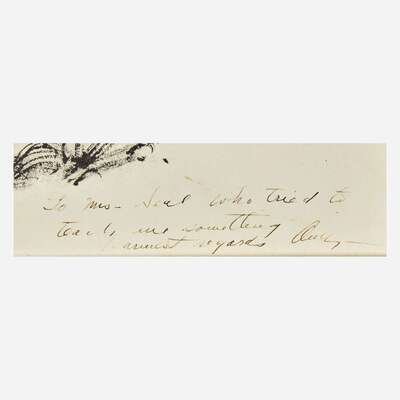 To Mrs- Seal who tried to
teach me something
warmest regards